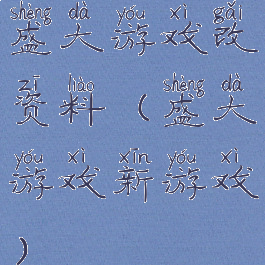 shèng dà yóu xì gǎi
盛大游戏改
zī liào shèng dà
资料(盛大
yóu xì xīn yóu xì
游戏新游戏
)